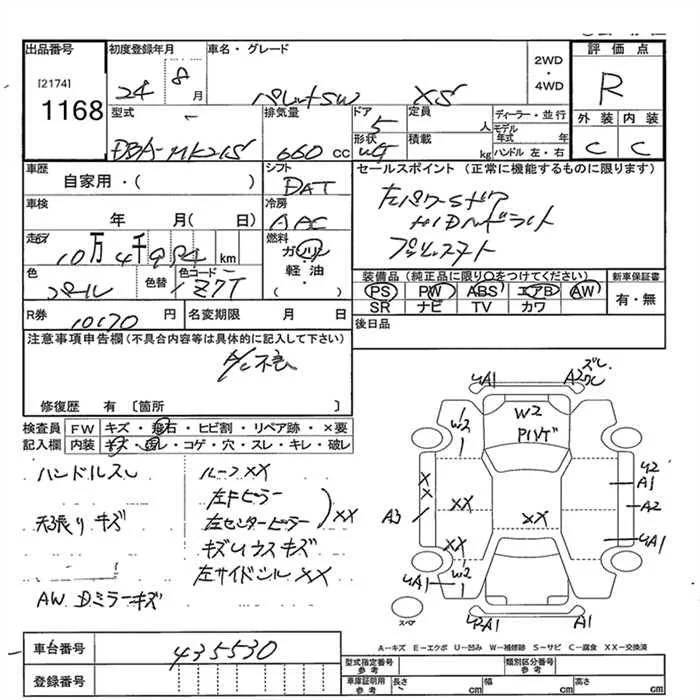 出品番号 初度登録年月 車名・グレード 2WD・4WD 評価点
[2174] 1168 24 8月 パレットSW XS R
型式 排気量 ドア 定員 ディーラー・並行 外装 内装
DBA-MK21S 660 cc 5 人 モデル年式 年 C C
形状 積載 kg ハンドル 左・右
車歴 シフト セールスポイント (正常に機能するものに限ります)
自家用・( ) DAT 左パワーSドア
車検 冷房 HIDヘッドライト
年 月( 日) AAC プッシュスタート
走行 燃料
10万4千 km ガソリン
色 色替 色コード 軽油・( ) 装備品 (純正品に限り○をつけてください) 新車保証書
パール Z7T PS PW ABS エアB AW 有・無
SR ナビ TV カワ
R券 10170 円 名変期限 月 日 後日品
注意事項申告欄(不具合内容等は具体的に記入して下さい)
A/C不良
修復歴 有 [箇所 ]
検査員 FW キズ・飛石・ヒビ割・リペア跡・×要
記入欄 内装 キズ・汚レ・コゲ・穴・スレ・キレ・破レ
ハンドルスレ ルーフXX
左Fピラー
天張りキズ 左センターピラー XX
キズUウスキズ
左サイドシルXX
AW Dミラーキズ
UA1 A2 ズレ
W2 W2
U2
A1
XX A2
A3 XX XX
XX UA1
UA1 W2
A1
スペア
A-キズ E-エクボ U-凹み W-補修跡 S-サビ C-腐食 XX-交換済
車台番号 435530 型式指定番号 参考 類別区分番号 参考
登録番号 車庫証明用 参考 長さ cm 幅 cm 高さ cm